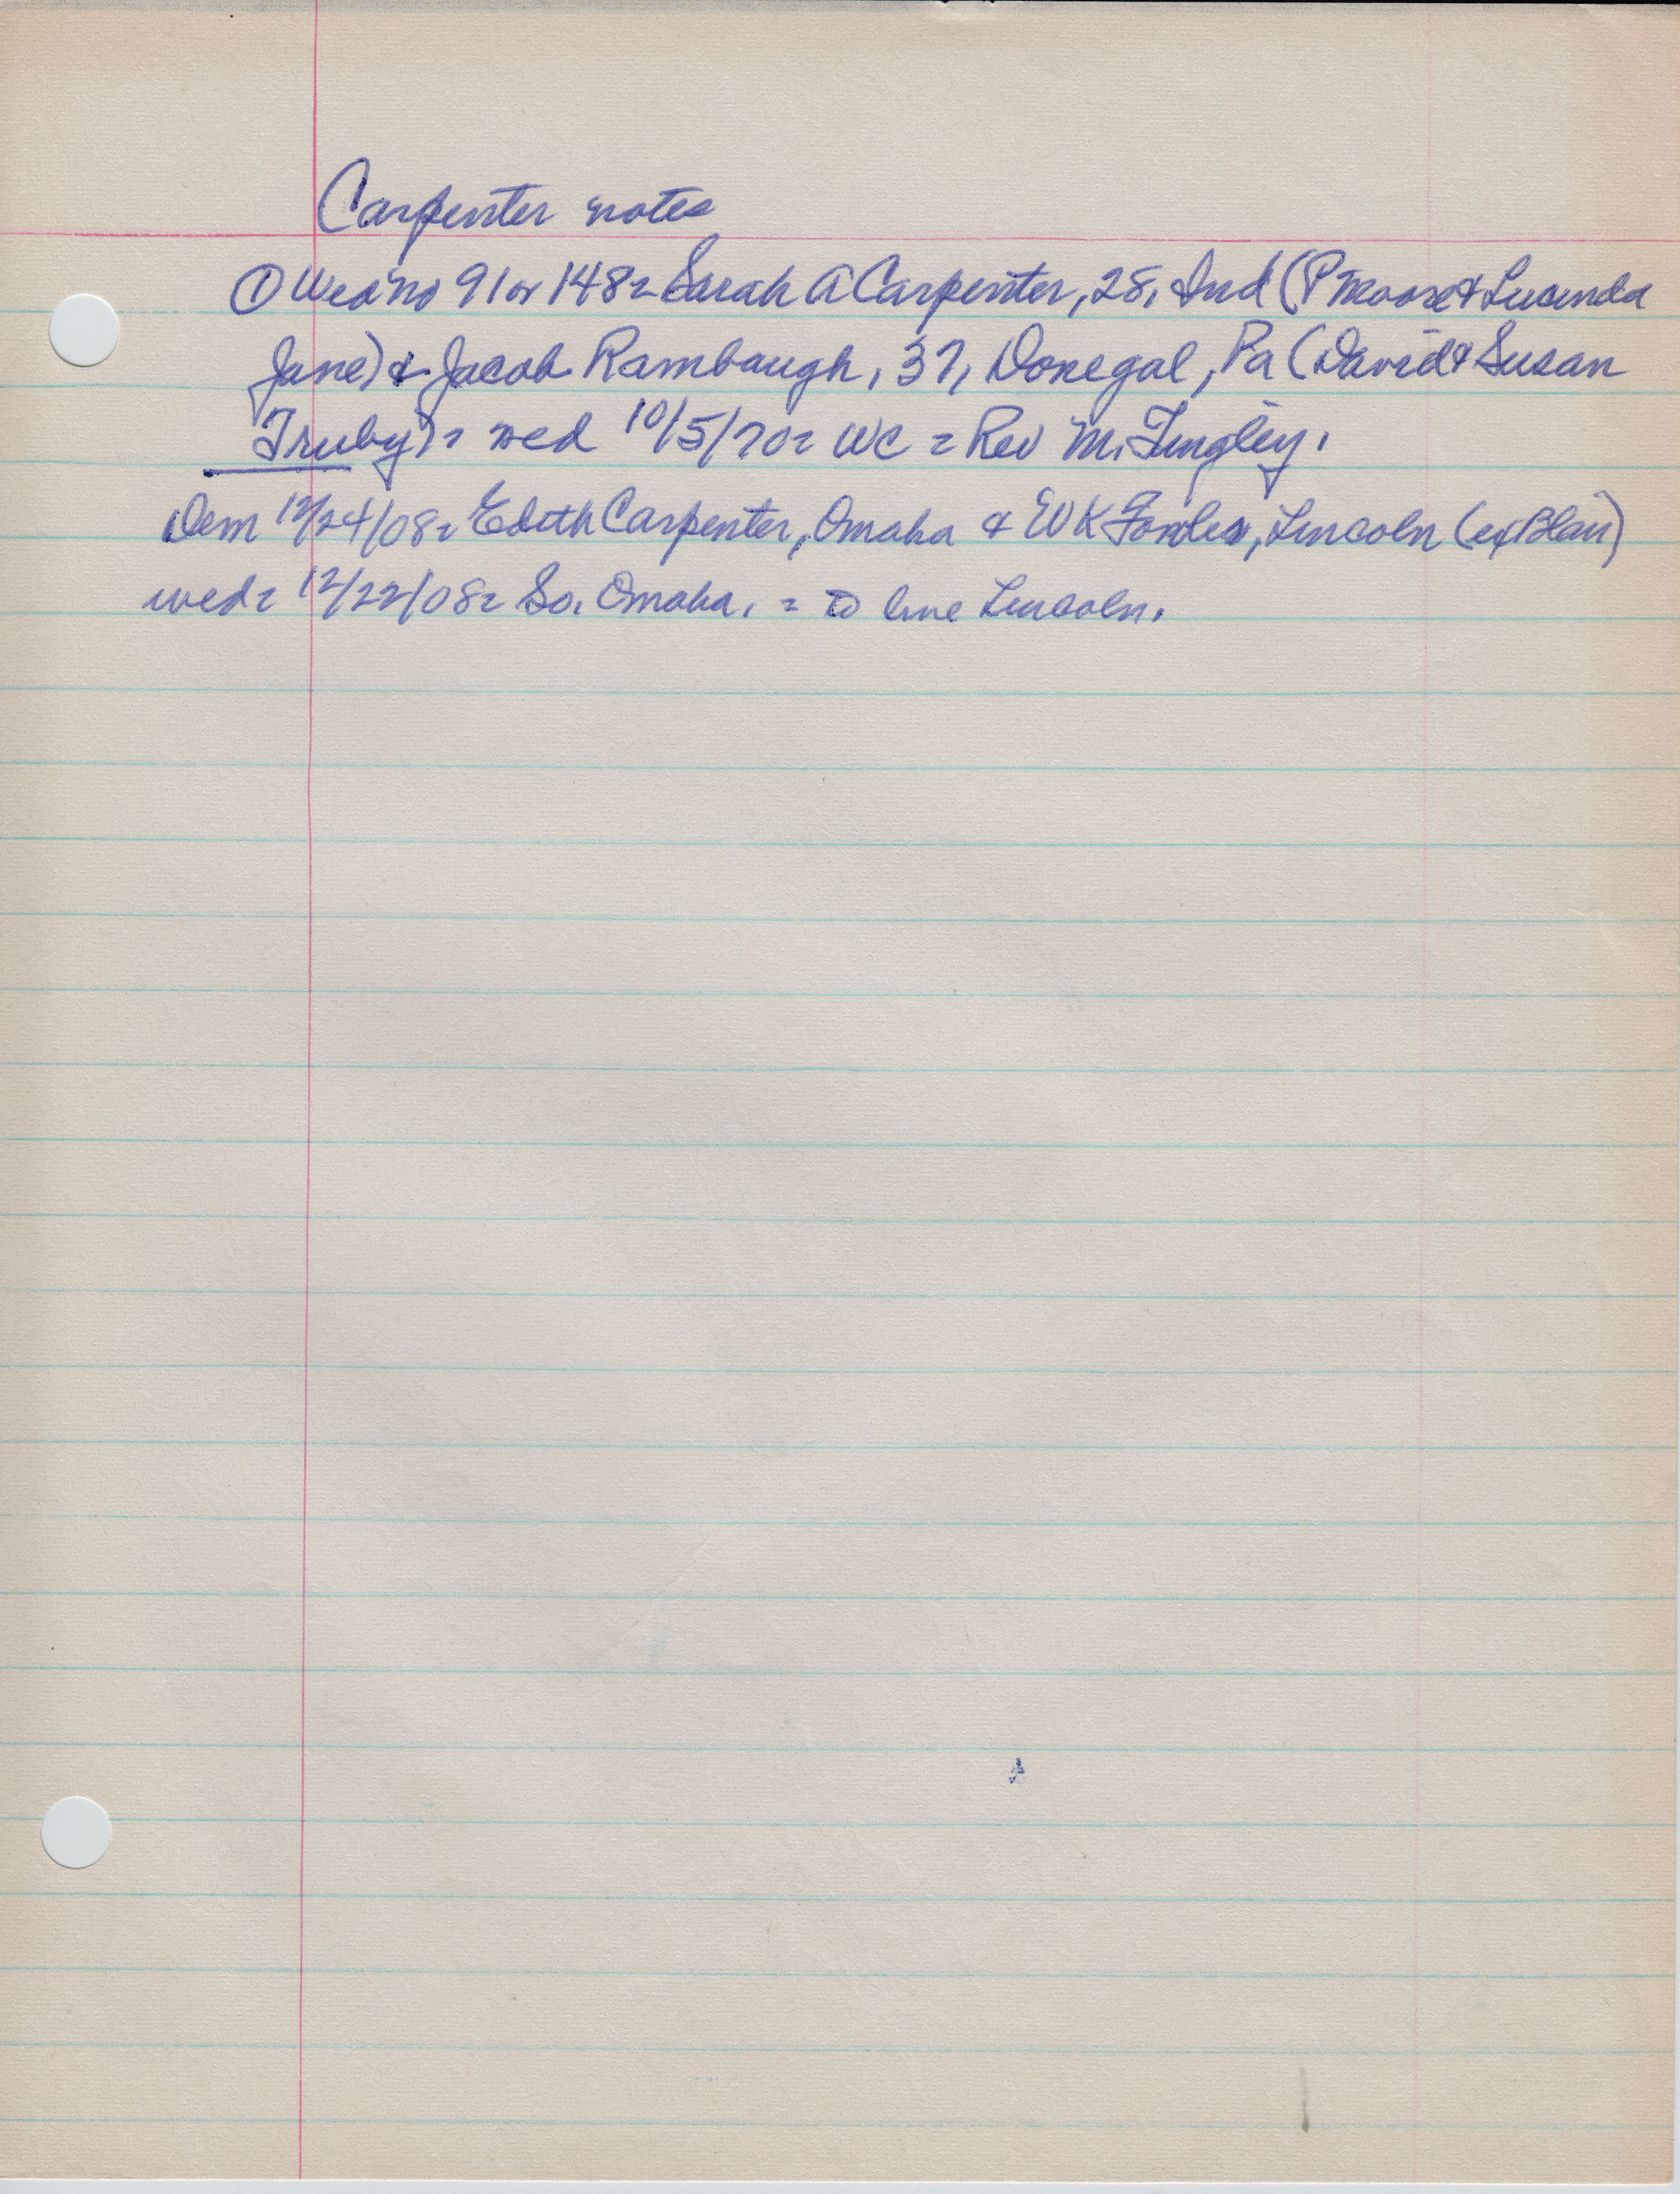 Carpenter notes
① Wed no 91 or 148 = Sarah A Carpenter, 28, Ind (P Moore & Lucinda
Jane) & Jacob Rambaugh, 37, Donegal, Pa (David & Susan
Truby) = wed 10/5/70 = WC = Rev M. Tingley.
Dem 12/24/08 = Edith Carpenter, Omaha & W K Fowler, Lincoln (ex Blair)
wed = 12/22/08 = So. Omaha. = to live Lincoln.